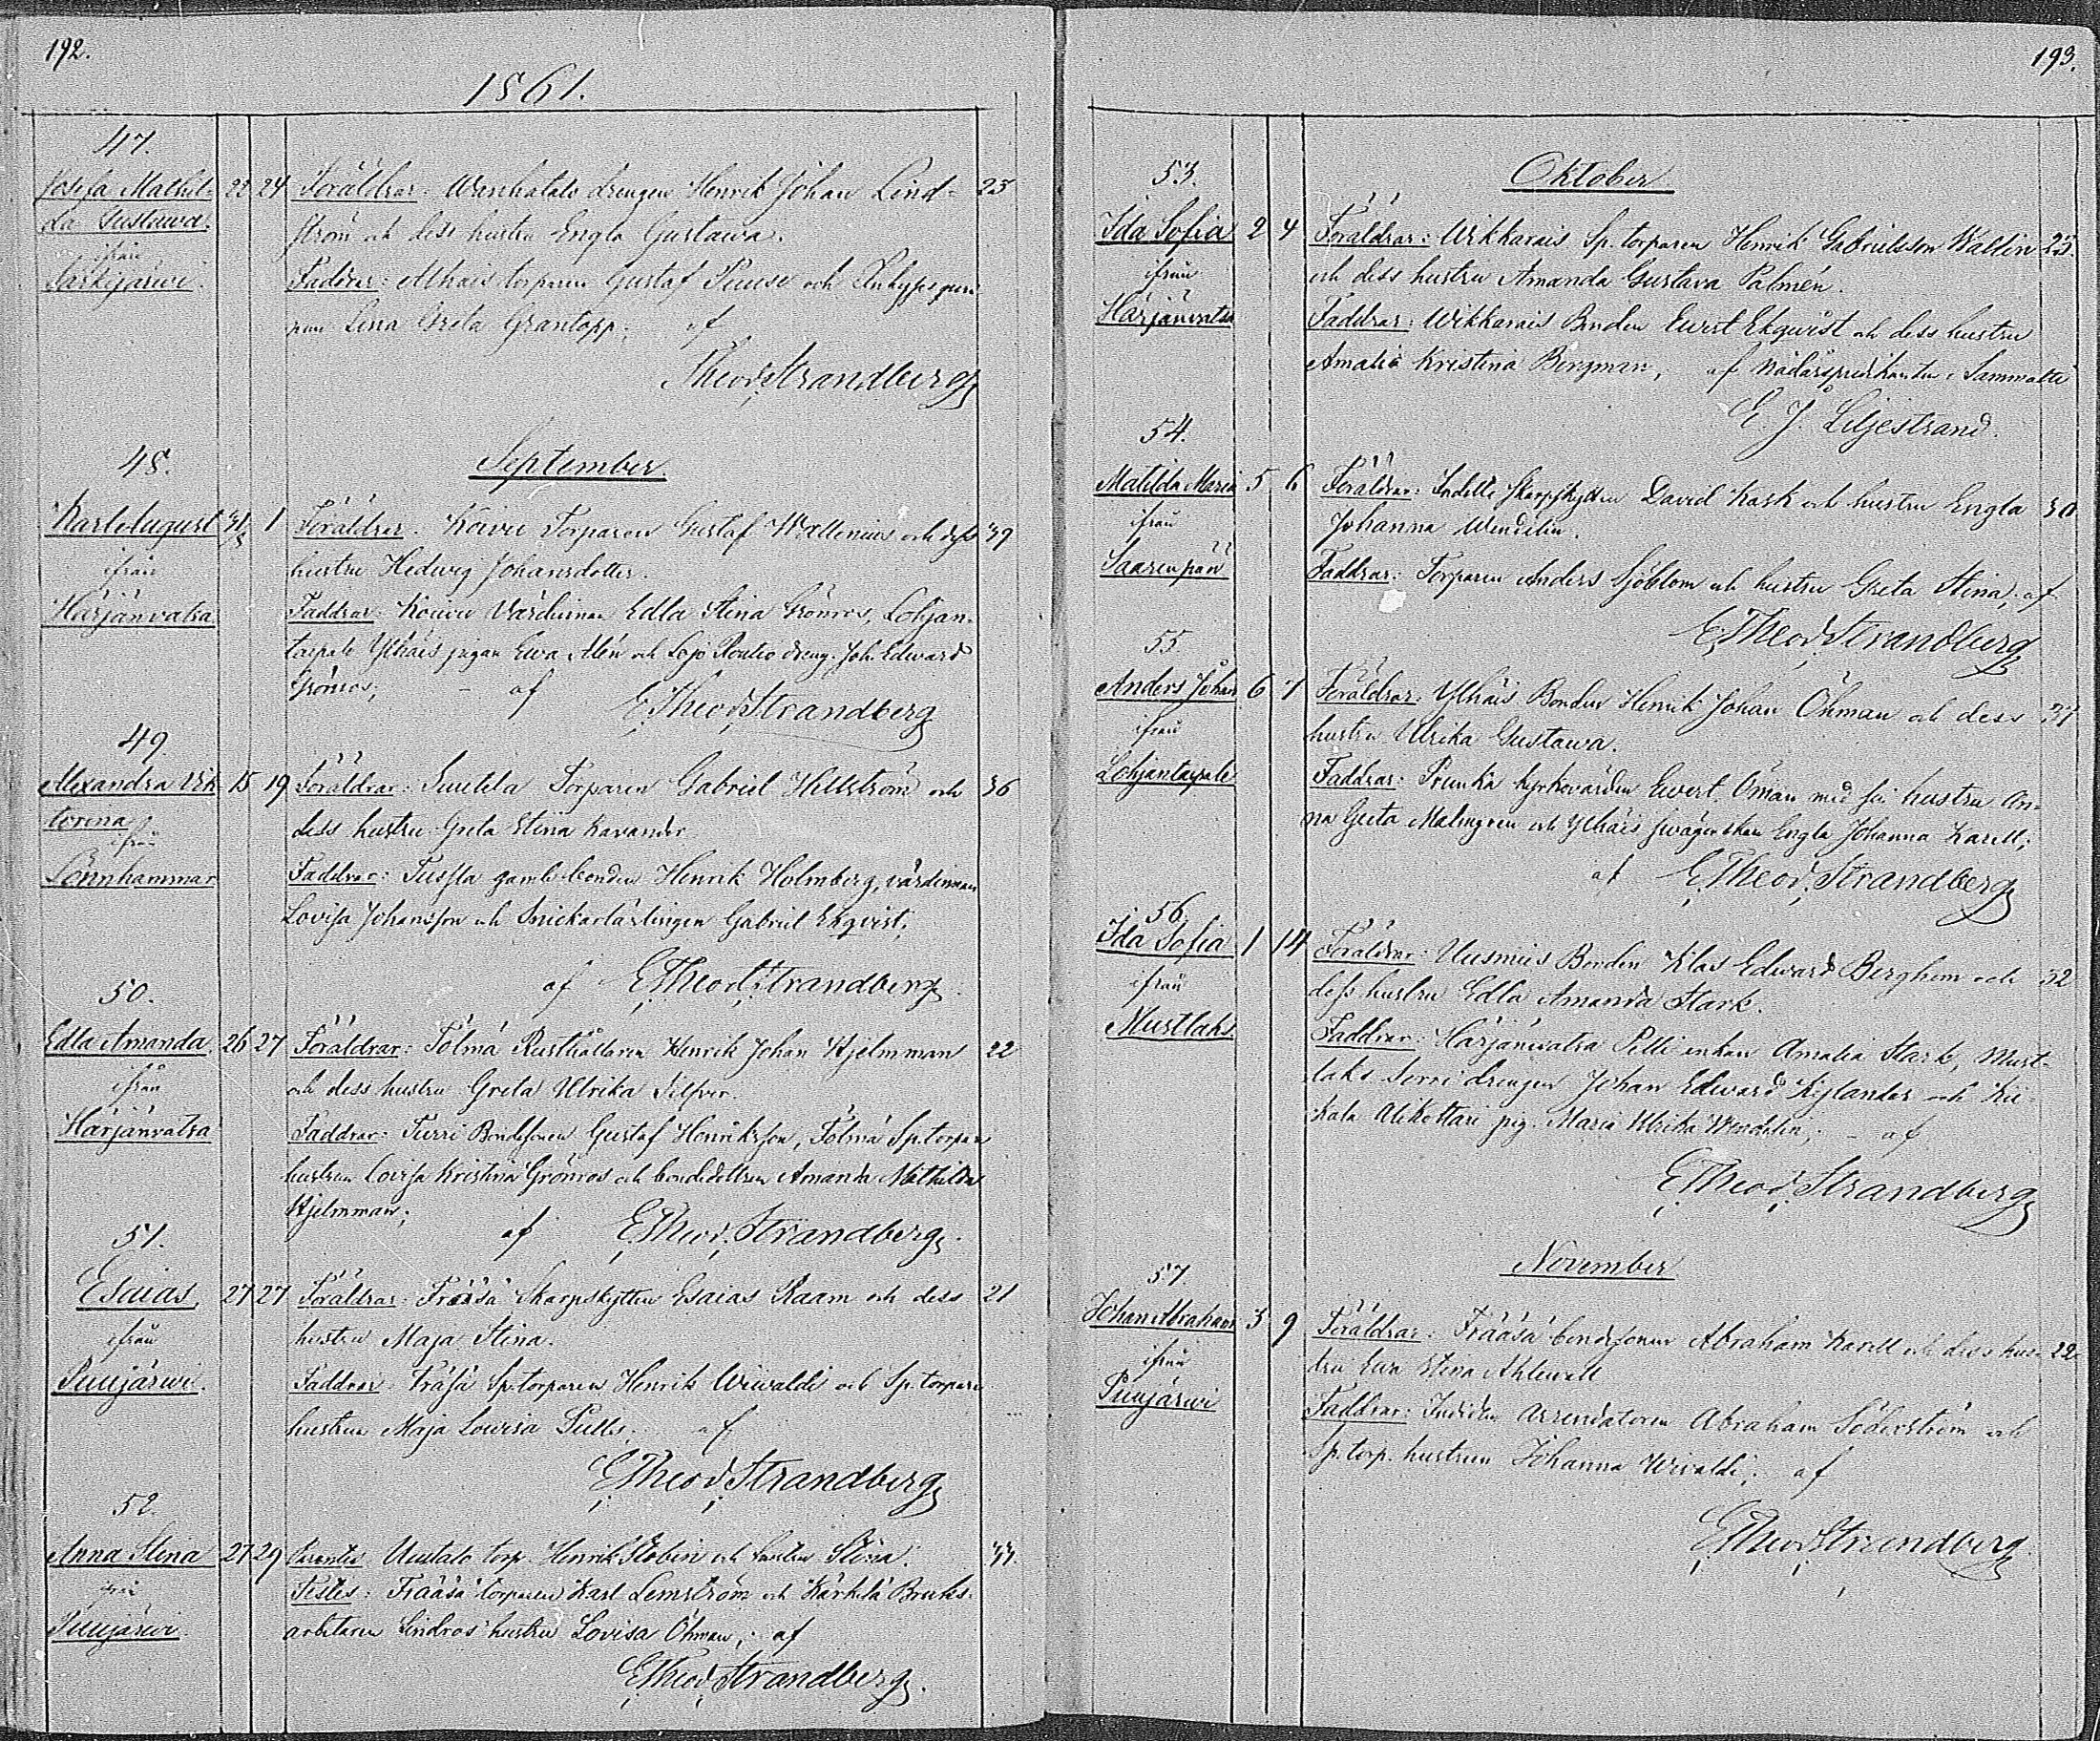 192.
1861.
47.
Josefa Mathil-
da Gustawa.
ifrån
Särkijärwi.
22 24 Föräldrar: drengen Henrik Johan Lind- 25
ström och dess hustru Engla Gustawa.
Faddrar: torparen Gustaf och
Lina Greta Grantopp; af
Theod. Strandberg
September.
48.
Karl August
ifrån
Härjänvatsa.
31/8 1 Föräldrar: Koivu Torparen Gustaf Wallenius och dess 39
hustru Hedwig Johansdotter.
Faddrar: Koivu Värdinnan Edla Stina Grönros, Lohjan-
taipale Ylhäis pigan Ewa Alén och Lojo Routio dreng. Joh. Edward
Grönros; af E. Theod. Strandberg
49
Alexandra Vik-
torina
ifrån
Lönnhammar
15 19 Föräldrar: Torparen Gabriel Hellström och 36
dess hustru Greta Stina Kavander.
Faddrar: gamle bonden Henrik Holmberg, värdinnan
Lovisa Johansson och Snickarlärlingen Gabriel Ekqvist;
af E. Theod. Strandberg
50.
Edla Amanda.
ifrån
Härjänvatsa
26 27 Föräldrar: Tölmä Rusthållaren Henrik Johan Hjelmman 22
och dess hustru Greta Ulrika Silfver.
Faddrar: Turri Bondesonen Gustaf Henriksson, Tölmä Sp.torpare
hustrun Lovisa Kristina Grönros och bondedottren Amanda Mathilda
Hjelmman; af E. Theod. Strandberg.
51.
Esaias,
ifrån
Puujärwi.
27 27 Föräldrar: Frääsä Skarpskytten Esaias Raam och dess 21
hustru Maja Stina.
Faddrar: Fräsä Sp.torparen Henrik Wiwaldi och Sp.torpare
hustrun Maja Lowisa af
E. Theod. Strandberg
52.
Anna Stina
ifrån
Puujärwi.
27 29 Parentes: Uustalo torp. Henrik och hustru Stina. 33
Testes: Frääsä torparen Karl Lemström och Kärkelä Bruks-
arbetaren Lindros hustru Lovisa Öhman; af
E. Theod. Strandberg.
193.
Oktober
53.
Ida Sofia
ifrån
Härjänvatsa
2 4 Föräldrar: Wikkarais Sp. torparen Henrik Gabrielsson Wallin 25
och dess hustru Amanda Gustava Palmén.
Faddrar: Wikkarais Bonden Ewert Ekqwist och dess hustru
Amalia Kristina Bergman, af Nådårspredikanten i Sammatti
E. J. Liljestrand.
54.
Matilda Maria
ifrån
Saarenpää
5 6 Föräldrar: Indelte Skarpskytten David Kask och hustru Engla 30
Johanna Wendelin.
Faddrar: Torparen Anders Sjöblom och hustru Greta Stina; af
E. Theod. Strandberg
55.
Anders Johan
ifrån
Lohjantaipale
6 7 Föräldrar: Ylhäis Bonden Henrik Johan Öhman och dess 37
hustru Ulrika Gustawa.
Faddrar: Prunkä kyrkovärden Ewert Öman med sin hustru An-
na Greta Malmgren och Ylhäis swägerskan Engla Johanna Karell;
af E. Theod. Strandberg
56.
Ida Sofia
ifrån
Mustlaks
1 14 Föräldrar: Bonden Klas Edward Berghem och 32
dess hustru Edla Amanda Stark.
Faddrar: Härjänvatsa Pelli enkan Amalia Stark, Must-
laks drengen Johan Edward Kylander och Kii-
kala Alikottari pig. Maria Ulrika Wendelin; af
E. Theod. Strandberg
November
57.
Johan Abraham
ifrån
Puujärwi
3 9 Föräldrar: Frääsä bondesonen Abraham Karell och dess hus- 22
tru Ewa Stina Ahlewall
Faddrar: Arrendatoren Abraham Söderström och
Sp.torp. hustrun Johanna Wivaldi; af
E. Theod. Strandberg